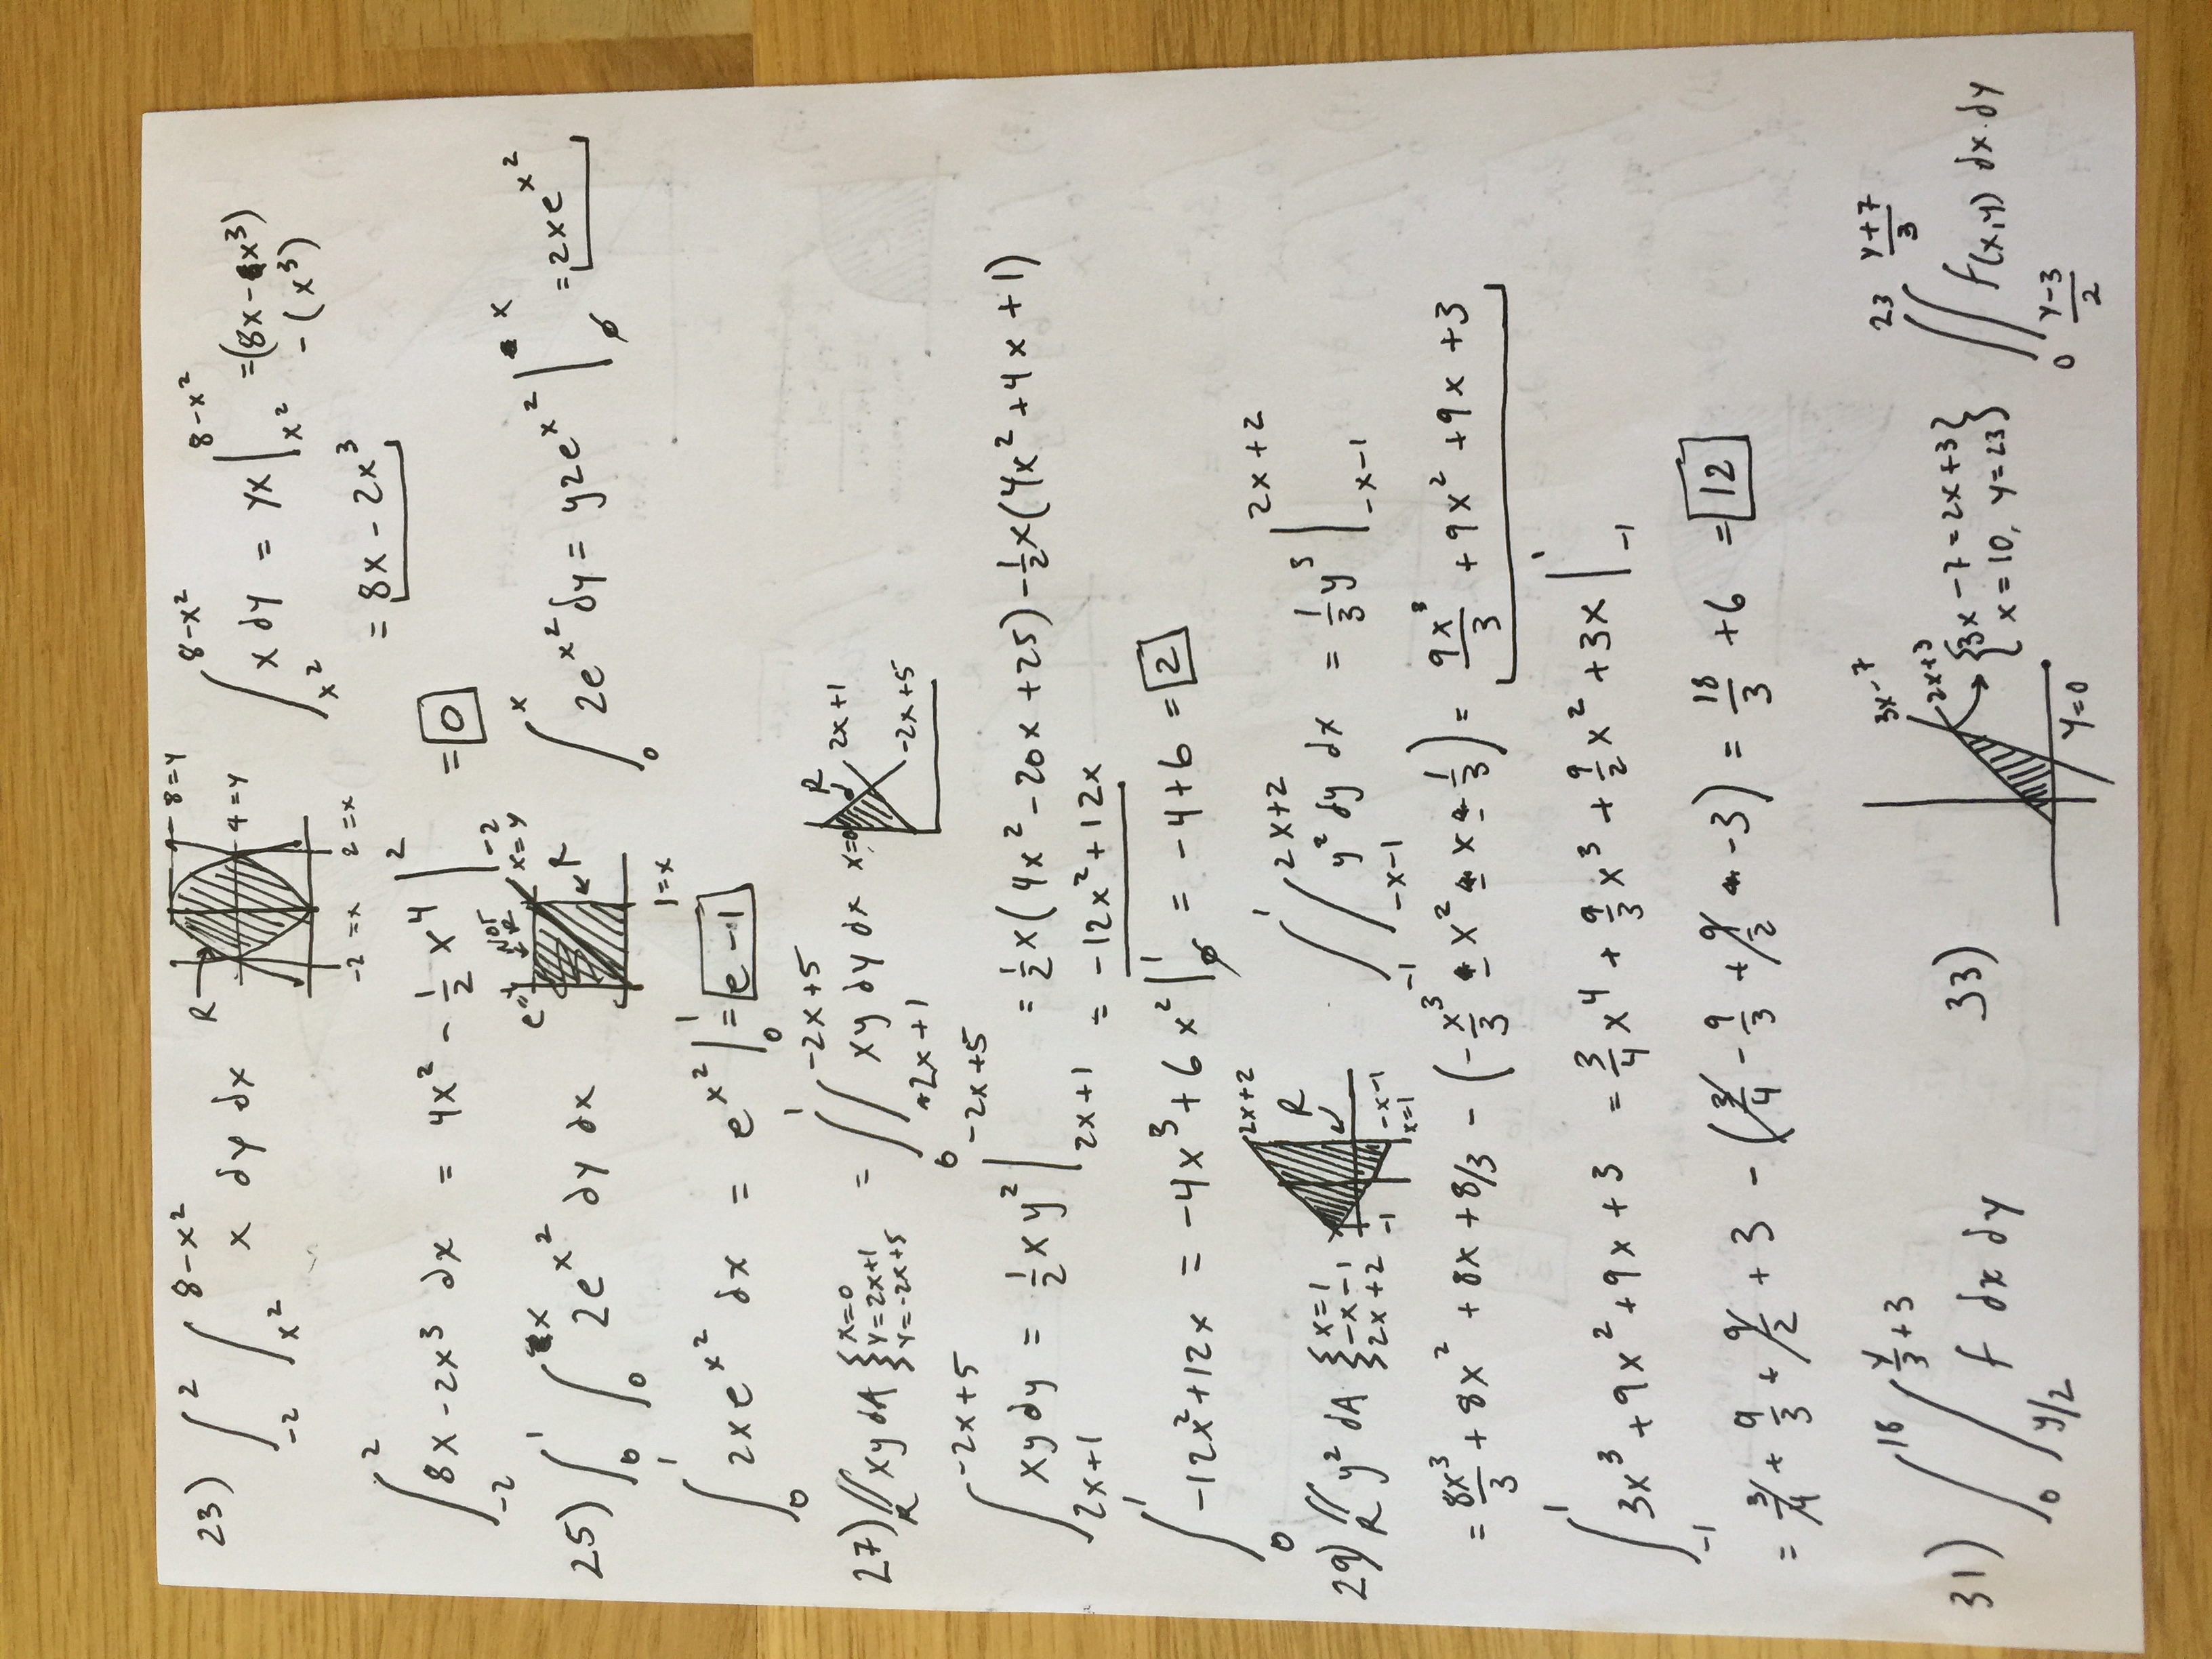 23) ∫_{-2}^{2} ∫_{x²}^{8-x²} x dy dx
R 8=y 4=y -2=x 2=x
∫_{x²}^{8-x²} x dy = yx |_{x²}^{8-x²} =(8x-x³)
-(x³)
= 8x-2x³
∫_{-2}^{2} 8x-2x³ dx = 4x² - 1/2 x⁴ |_{-2}^{2} = 0
25) ∫_{0}^{1} ∫_{0}^{x} 2e^{x²} dy dx
NOT R x=y R 1=x
∫_{0}^{x} 2e^{x²} dy = y2e^{x²} |_{0}^{x} = 2xe^{x²}
∫_{0}^{1} 2xe^{x²} dx = e^{x²} |_{0}^{1} = e-1
27) ∬_R xy dA { x=0
y=2x+1
y=-2x+5
= ∫_{0}^{1} ∫_{2x+1}^{-2x+5} xy dy dx
x=0 R 2x+1 -2x+5
∫_{2x+1}^{-2x+5} xy dy = 1/2 xy² |_{2x+1}^{-2x+5} = 1/2 x(4x²-20x+25) - 1/2 x(4x²+4x+1)
= -12x²+12x
∫_{0}^{1} -12x²+12x = -4x³+6x² |_{0}^{1} = -4+6 = 2
29) ∬_R y² dA { x=1
-x-1
2x+2
2x+2 R -1 -x-1 x=1
∫_{-1}^{1} ∫_{-x-1}^{2x+2} y² dy dx = 1/3 y³ |_{-x-1}^{2x+2}
= 8x³/3 + 8x² + 8x + 8/3 - (-x³/3 - x² - x - 1/3) = 9x³/3 + 9x² + 9x + 3
∫_{-1}^{1} 3x³+9x²+9x+3 = 3/4 x⁴ + 9/3 x³ + 9/2 x² + 3x |_{-1}^{1}
= 3/4 + 9/3 + 9/2 + 3 - (3/4 - 9/3 + 9/2 - 3) = 18/3 + 6 = 12
31) ∫_{0}^{18} ∫_{y/2}^{y/3+3} f dx dy
33) 3x-7 2x+3 y=0
{3x-7=2x+3}
{x=10, y=23}
∫_{0}^{23} ∫_{(y-3)/2}^{(y+7)/3} f(x,y) dx dy